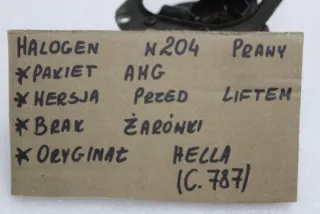 HALOGEN W204 PRAWY
*PAKIET AMG
*WERSJA PRZED LIFTEM
*BRAK ŻARÓWKI
*ORYGINAŁ HELLA
(C. 787)